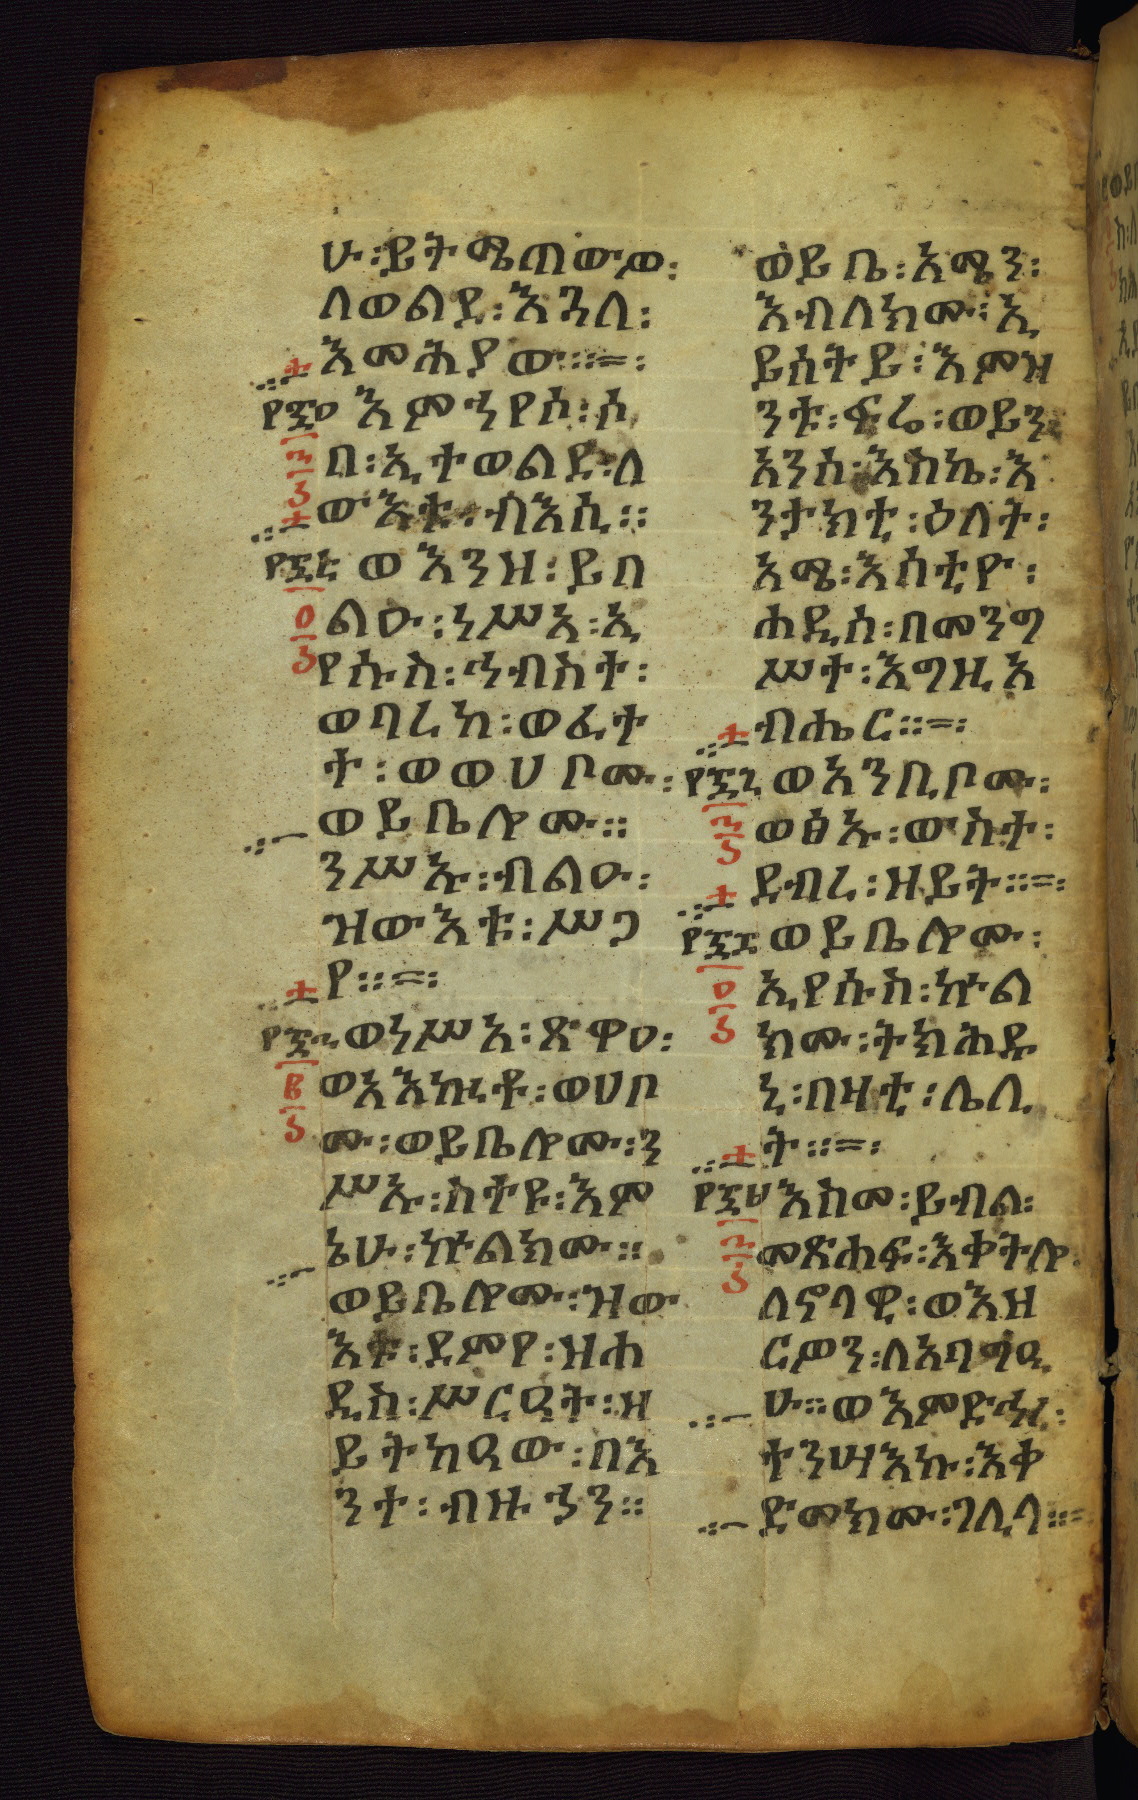 ሁ፡ይትሜጠውዎ፡
ለወልደ፡እጓለ፡
እመሕያው፡፡=፡
፻፷ዐ እምኀየሶ፡ሶ
በ፡ኢተወልደ፡ለ
ውእቱ፡ብእሲ፡፡
፻፷፩ ወእንዘ፡ይበ
ልዑ፡ነሥአ፡ኢ
የሱስ፡ኅብስተ፡
ወባረከ፡ወፈተ
ተ፡ወወሀቦሙ፡
ወይቤሎሙ፡፡
ንሥኡ፡ብልዑ፡
ዝውእቱ፡ሥጋ
የ፡፡=፡
ወነሥአ፡ጽዋዐ፡
ወአእኰቶ፡ወሀቦ
ሙ፡ወይቤሎሙ፡ን
ሥኡ፡ስትዩ፡እም
ኔሁ፡ኵልክሙ፡፡
ወይቤሎሙ፡ዝው
እቱ፡ደምየ፡ዘሐ
ዲስ፡ሥርዓት፡ዘ
ይትከዓው፡በእ
ንተ፡ብዙኃን፡፡
ወይቤ፡አሜን፡
እብለክሙ፡ኢ
ይሰትይ፡እምዝ
ንቱ፡ፍሬ፡ወይን
አንሰ፡እስከ፡እ
ንታክቲ፡ዕለት፡
አሜ፡እሰቲዮ፡
ሐዲሰ፡በመንግ
ሥተ፡እግዚአ
ብሔር፡፡=፡
ወአንቢቦሙ፡
ወፅኡ፡ውስተ፡
ደብረ፡ዘይት፡፡=፡
ወይቤሎሙ፡
ኢየሱስ፡ኵል
ክሙ፡ትክሕዱ
ኒ፡በዛቲ፡ሌሊ
ት፡፡=፡
እስመ፡ይብል፡
መጽሐፍ፡እቀትሎ
ለኖላዊ፡ወእዝ
ርዎን፡ለአባግዒ
ሁ፡፡ወእምድኅረ፡
ተንሣእኩ፡እቀ
ድመክሙ፡ገሊላ፡፡=